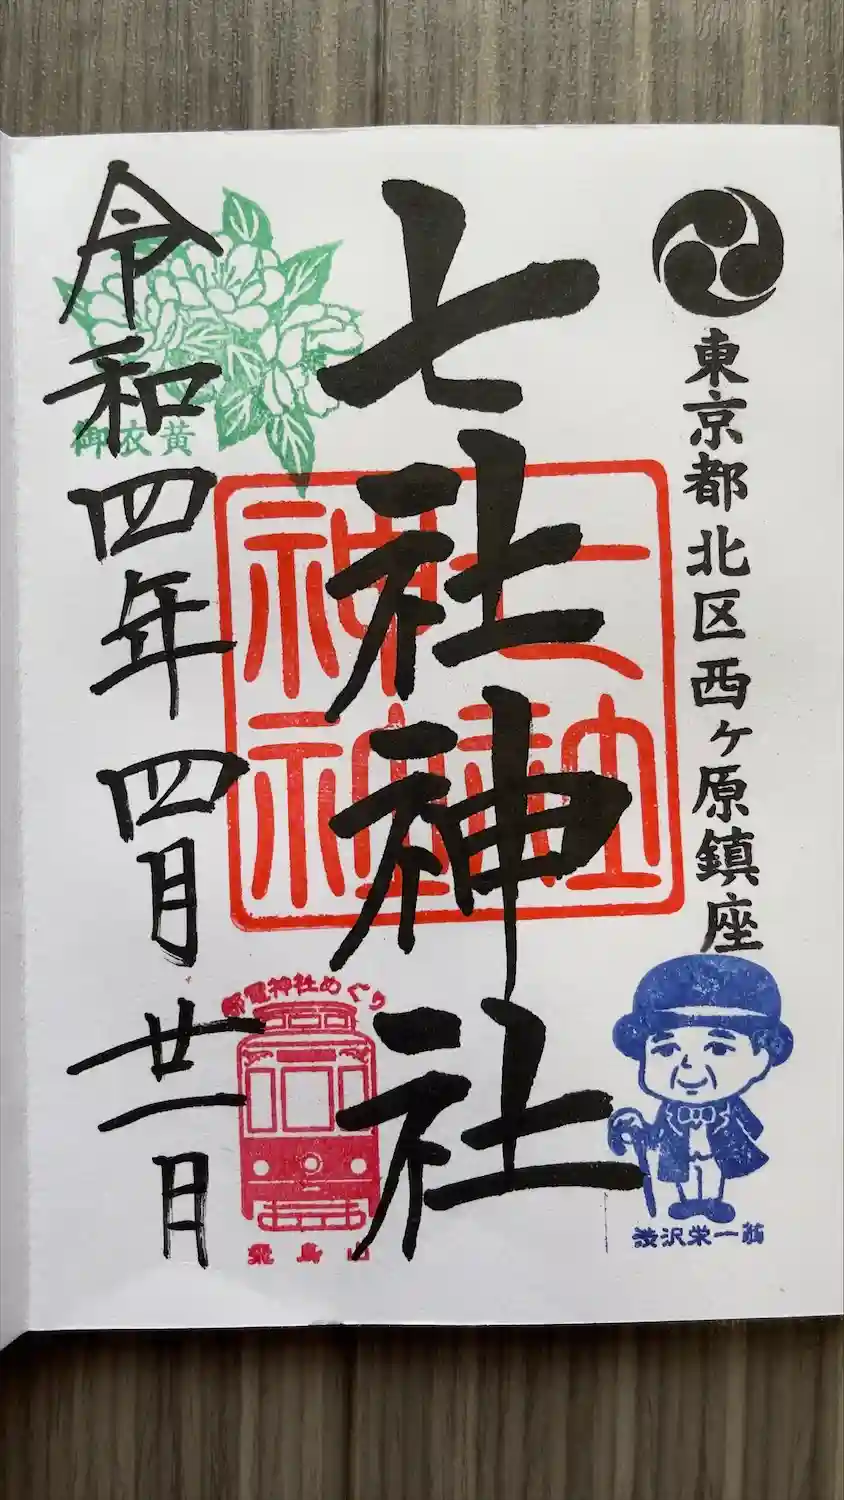 東京都北区西ヶ原鎮座
渋沢栄一翁
七社神社
七社
神社
御衣黄
令和四年四月廿一日
都電神社めぐり
飛鳥山